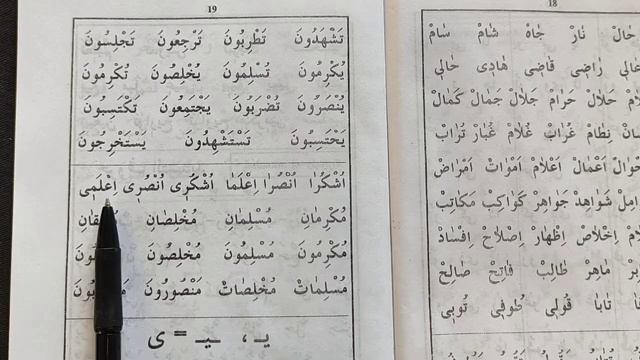 19
تَشْهَدُونَ تَضْرِبُونَ تَرْجِعُونَ تَجْلِسُونَ
يُكْرِمُونَ تُسْلِمُونَ يُخْلِصُونَ تُكْرِمُونَ
يُنْصَرُونَ تُضْرَبُونَ يَجْتَمِعُونَ تَكْتَسِبُونَ
يَحْتَسِبُونَ تَسْتَشْهِدُونَ يَسْتَخْرِجُونَ
اُشْكُرَا اُنْصُرَا اِعْلَمَا اُشْكُرِى اُنْصُرِى اِعْلَمِى
مُكْرِمَانِ مُسْلِمَانِ مُخْلِصَانِ
مُكْرِمُونَ مُسْلِمُونَ مُخْلِصُونَ
مُسْلِمَاتٌ مُخْلِصَاتٌ مَنْصُورُونَ
يـ ، ـيـ = ى
18
خَالْ نَارْ جَاهْ شَامْ سَامْ
رَاضِى قَاضِى هَادِى خَالِى
حَلَالْ حَرَامْ جَلَالْ جَمَالْ كَمَالْ
نِظَامْ غُرَابْ غُلَامْ غُبَارْ تُرَابْ
اَعْمَالْ اَعْلَامْ اَمْوَاتْ اَمْرَاضْ
شَوَاهِدْ جَوَاهِرْ كَوَاكِبْ مَكَاتِبْ
اِخْلَاصْ اِظْهَارْ اِصْلَاحْ اِفْسَادْ
مَاهِرْ طَالِبْ فَاتِحْ صَالِحْ
تَابَا قُولِى طُوفِى تُوبِى